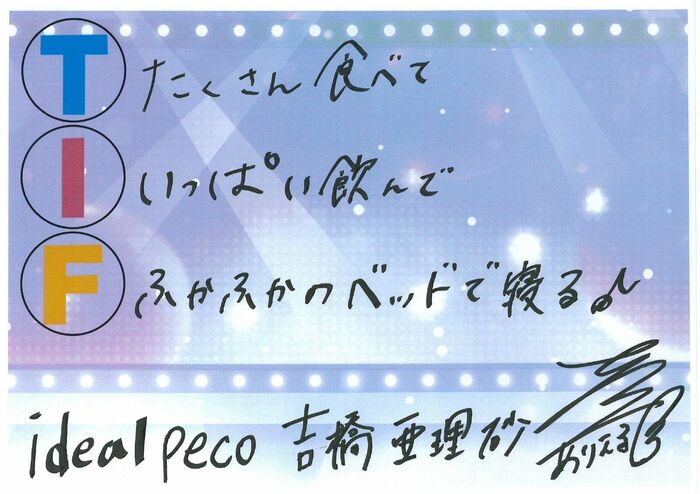 T たくさん食べて
I いっぱい飲んで
F ふかふかのベッドで寝る♪
idealpeco 吉橋亜理砂 ありえる